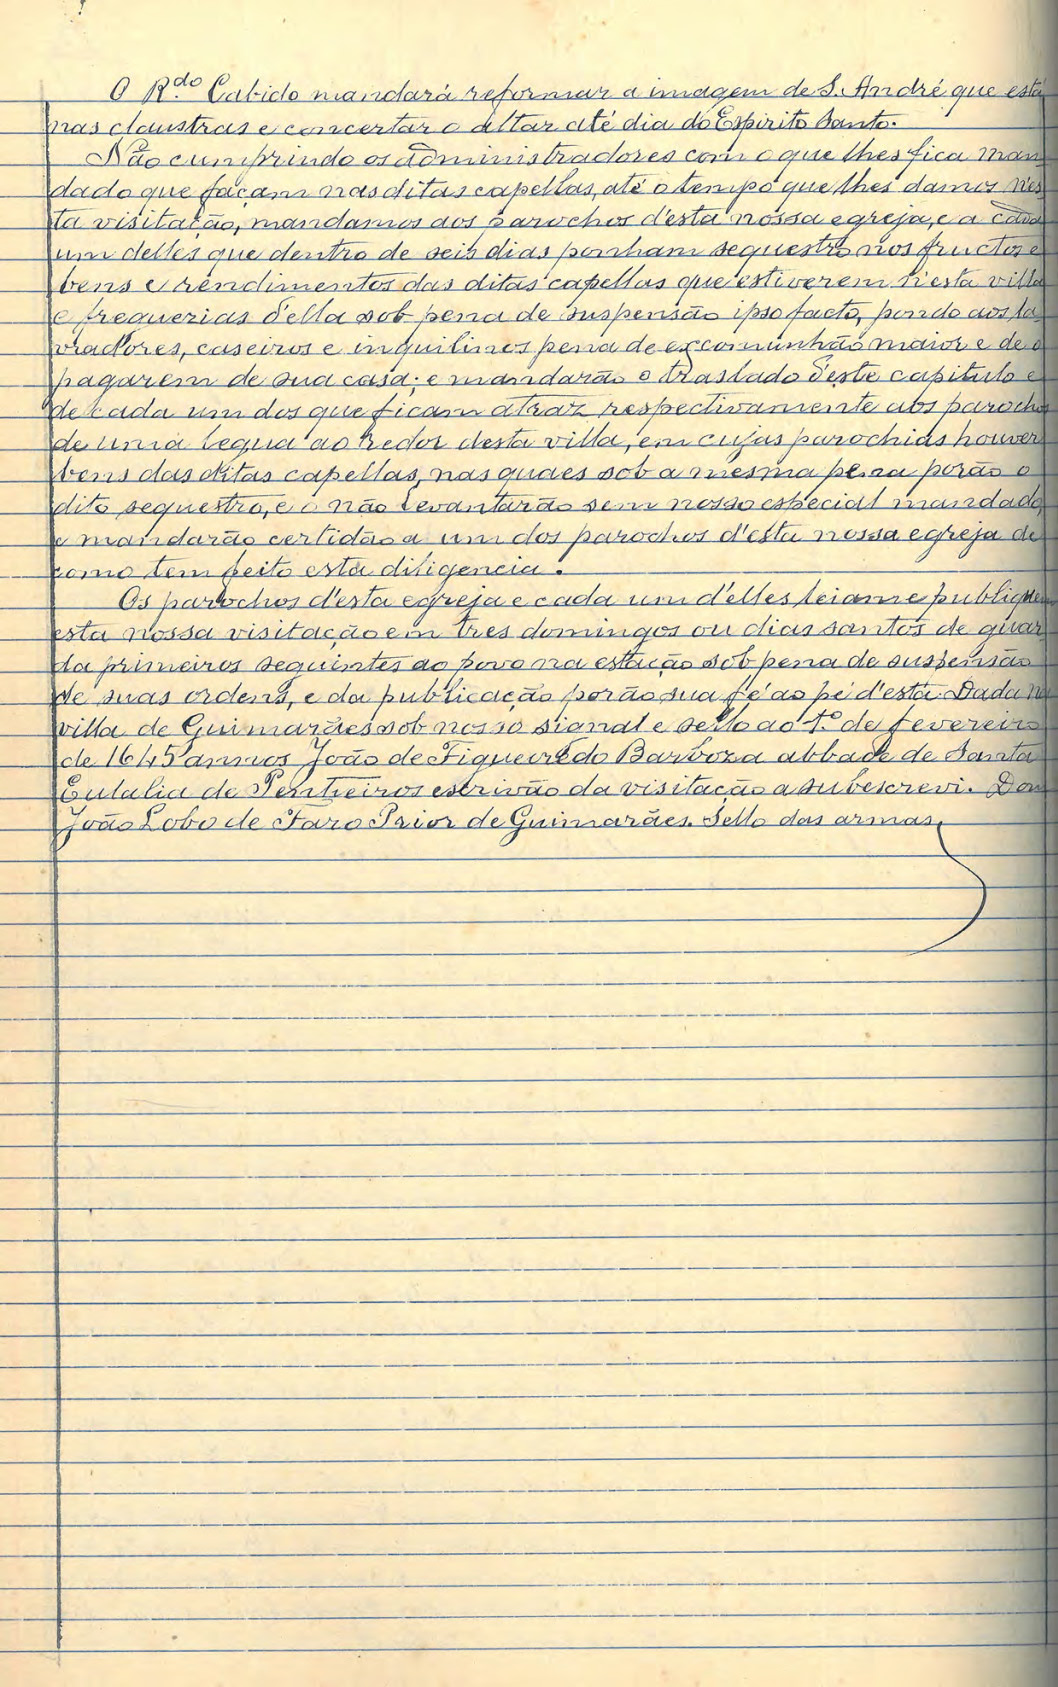 O R.do Cabido mandará reformar a imagem de S. André que está
nas claustras e concertar o altar até dia do Espirito Santo.
Não cumprindo os administradores com o que lhes fica man
dado que façam nas ditas capellas, até o tempo que lhes damos n'es
ta visitação, mandamos aos parochos d'esta nossa egreja, e a cada
um delles que dentro de seis dias ponham sequestro nos fructos e
bens e rendimentos das ditas capellas que estiverem n'esta villa
e freguezias d'ella sob pena de suspensão ipso facto, pondo aos la
vradores, caseiros e inquilinos pena de excomunhão maior e de o
pagarem de sua casa; e mandarão o traslado d'este capitulo e
de cada um dos que ficam atraz respectivamente aos parochos
de uma legua ao redor desta villa, em cujas parochias houver
bens das ditas capellas, nas quaes sob a mesma pena porão o
dito sequestro, e o não levantarão sem nosso especial mandado,
e mandarão certidão a um dos parochos d'esta nossa egreja de
como tem feito esta diligencia.
Os parochos d'esta egreja e cada um d'elles leiam e publiquem
esta nossa visitação em tres domingos ou dias santos de guar
da primeiros seguintes ao povo na estação sob pena de suspensão
de suas ordens, e da publicação porão sua fé ao pé d'esta. Dada na
villa de Guimarães sob nosso signal e sello ao 1.º de fevereiro
de 1645 annos João de Figueirêdo Barboza abbade de Santa
Eulalia de Pentieiros escrivão da visitação a subescrevi. Dom
João Lobo de Faro Prior de Guimarães. Sello das armas.